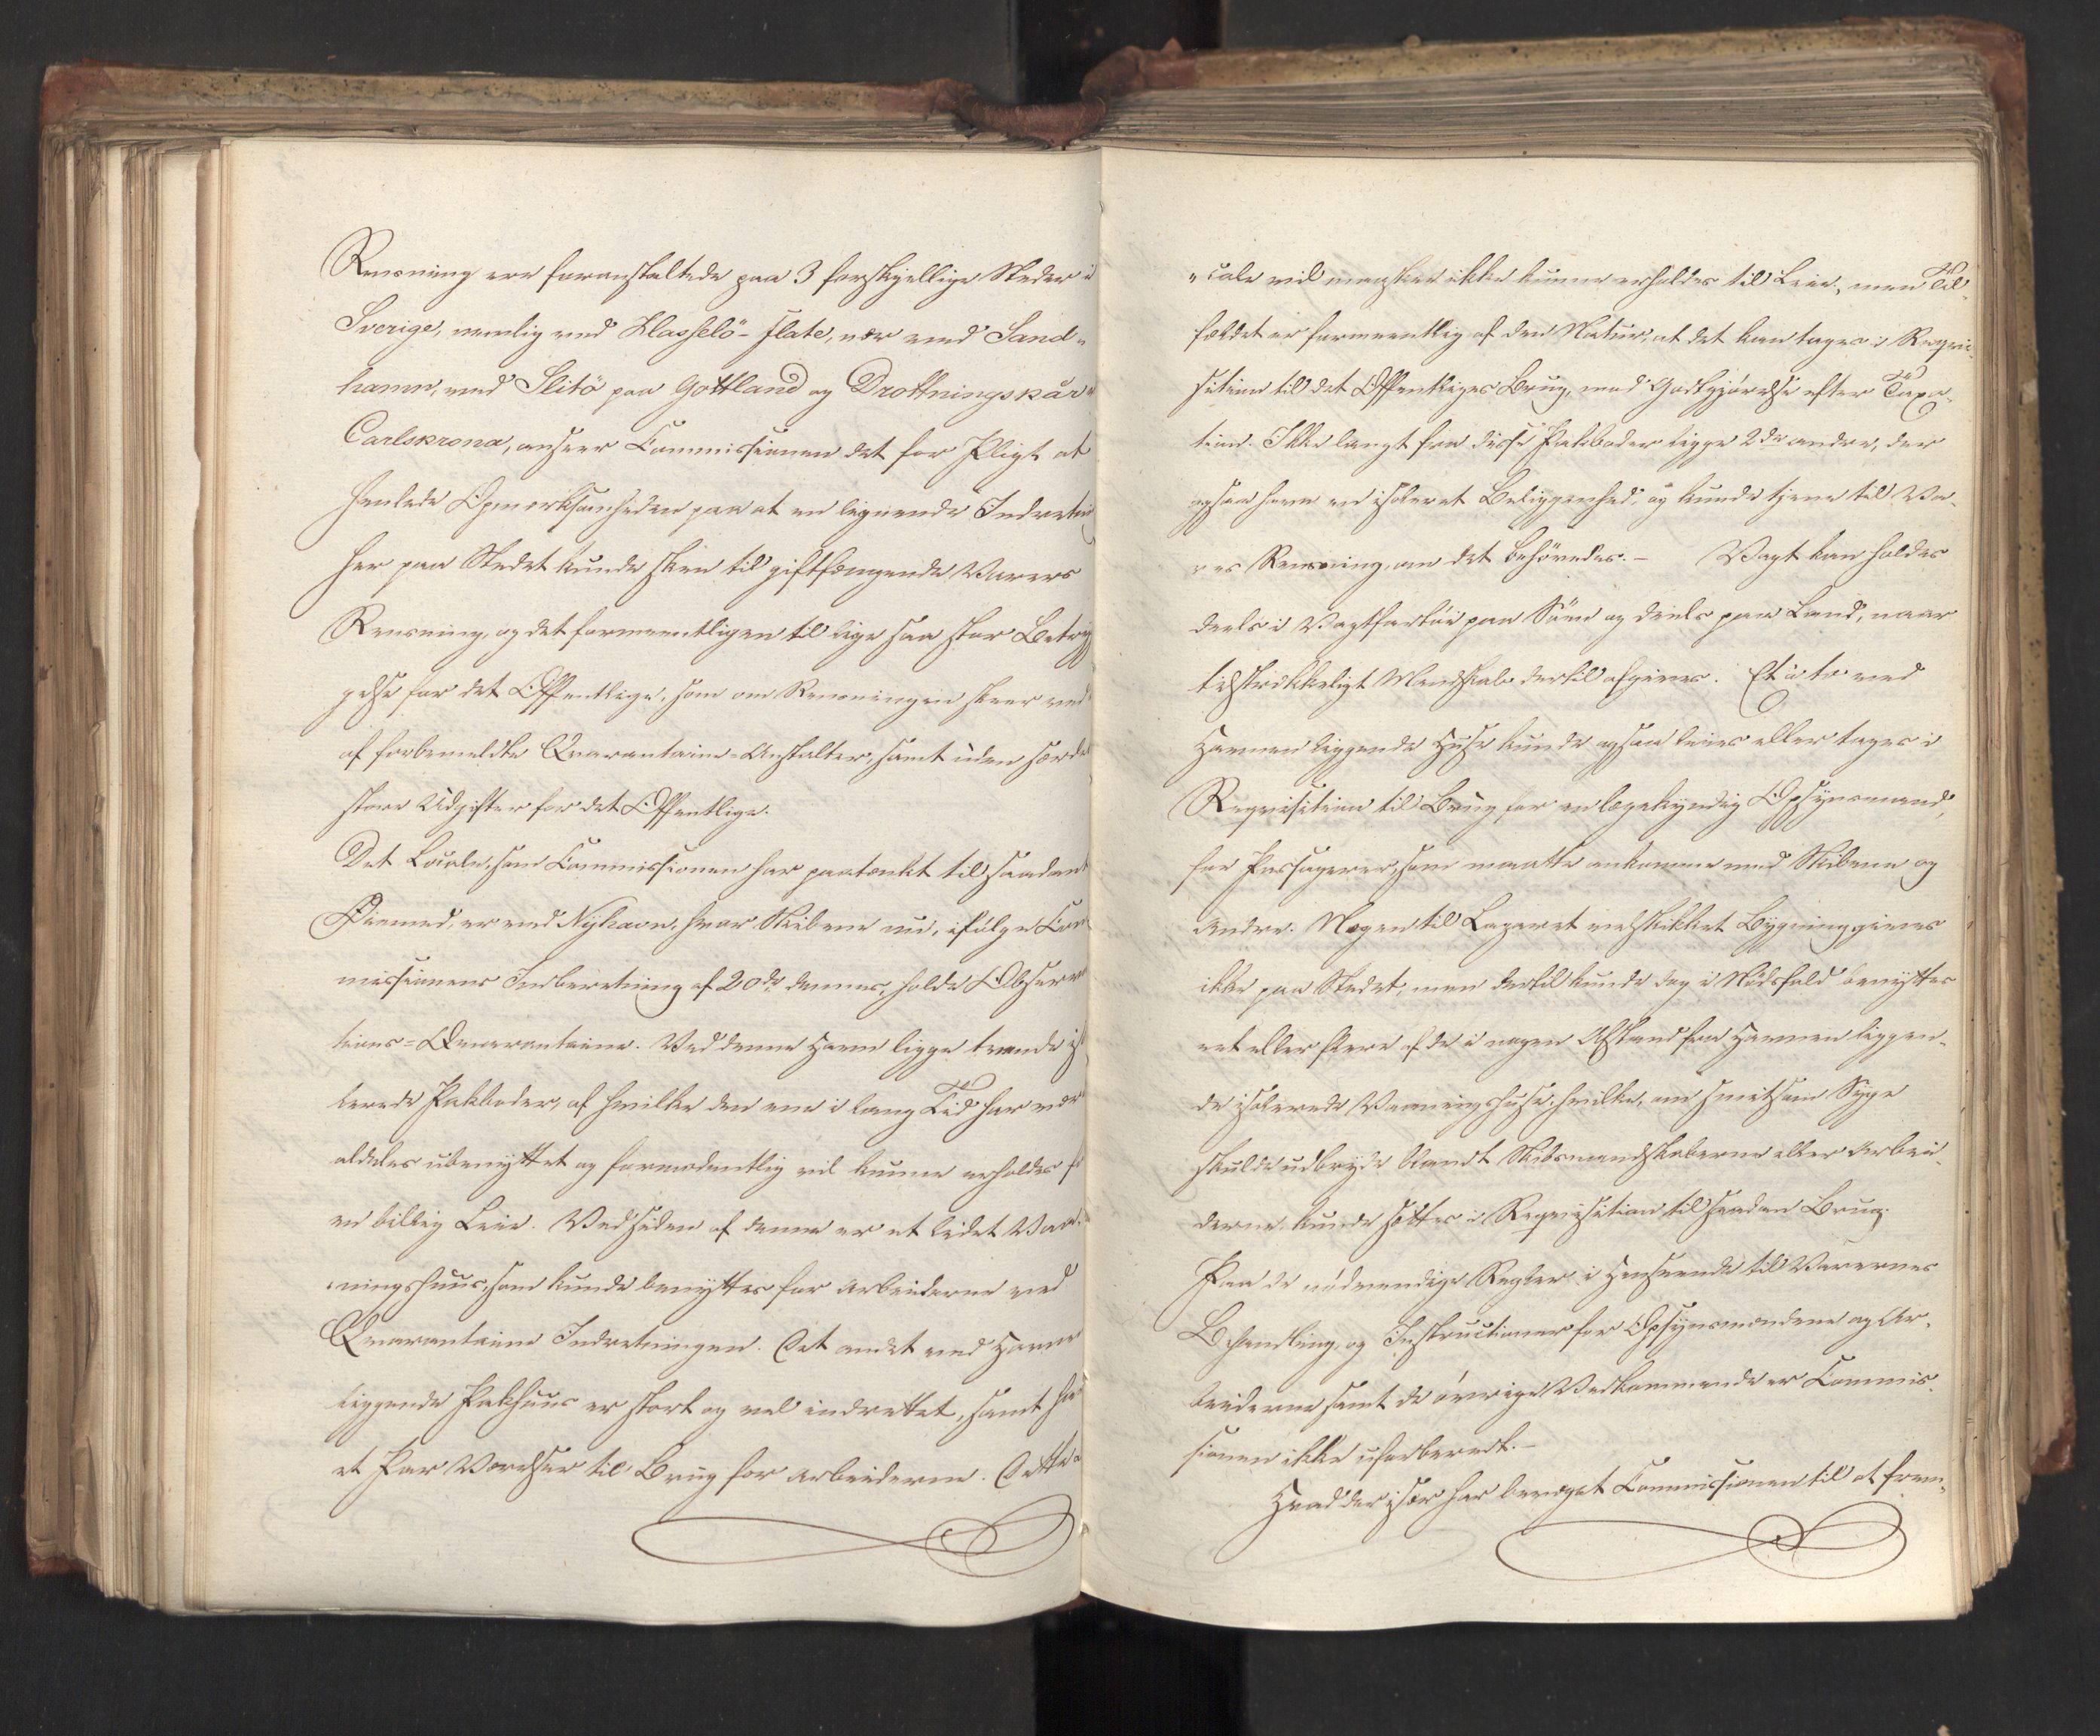 Rensning ere foranstaltede paa 3 forskjellige Steder i
Sverige, nemlig ved Hasselö-flate, nær ved Sand-
hamn, ved Slitö paa Gottland og Drottningskär
Carlskrona, anseer Commissionen det for Pligt at
henlede Opmerksomheden paa at en lignende Indretni
her paa Stedet kunde skee til giftfængende Varers
Rensning, og det formeentligen til lige saa stor Betryg
gelse for det Offentlige, som om Rensningen skeer ved
af forbemeldte Qvarantaine-Anstalter, samt uden særde
store Udgifter for det Offentlige.
Det Locale, som Commissionen har paatænkt til saadant
Øiemed, er ved Nyhavn, hvor Skibene nu, ifølge Com
missionens Indberetning af 20de dennes, holde Observa
tions-Qvarantaine. Ved denne Havn ligge tvende iso
lerede Pakboder, af hvilke den ene i lang Tid har vær
aldeles ubenyttet og formodentlig vil kunne erholdes f
en billig Leie. Ved Siden af denne er et lidet Vaa-
ningshuus, som kunde benyttes for Arbeiderne ved
Qvarantaine Indretningen. Det andet ved Havne
liggende Pakhuus er stort og vel indrettet, samt ha
et Par Værelser til Brug for Arbeiderne. Dette
"cale vil maaskee ikke kunne erholdes til Leie, men Til-
fældet er formeentlig af den Natur, at det kan tages i Reqvi-
sition til det Offentliges Brug, mod Godtgjørelse efter Taxa-
tion. Ikke langt fra disse Pakboder ligge 2de andre, der
ogsaa have en isoleret Beliggenhed, og kunde tjene til Va-
res Rensning, om det behövedes. - Vagt kan holdes
deels i Vagtfartöi paa Söen og deels paa Land, naar
tilstrækkeligt Mandskab dertil afgives. Et à to ved
Havnen liggende Huse kunde ogsaa leies eller tages i
Reqvisition til Brug for en lægekyndig Opsynsmand,
for Passagerer, som maatte ankomme med Skibene og
Andre. Nogen til Lazaret velskikket Bygning gives
ikke paa Stedet, men dertil kunde dog i Nödsfald benyttes
eet eller flere af de i nogen Afstand fra Havnen liggen-
de isolerede Vaaningshuse, hvilke, om smitsom Syge
skulde udbryde blandt Skibsmandskaberne eller Arbei-
derne, kunde sættes i Reqvisition til saadan Brug.
Paa de nödvendige Regler i Henseende til Varernes
Behandling, og Instructioner for Opsynsmændene og Ar-
beiderne samt de övrige Vedkommende er Commis-
sionen ikke uforberedt. -
Hvad der især har bevæget Commissionen til at frem-